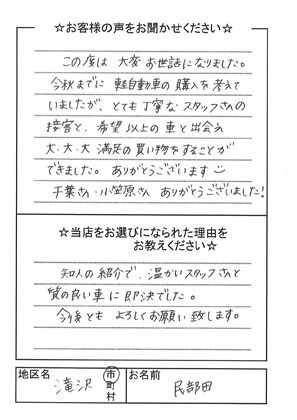 ☆お客様の声をお聞かせください☆
この度は 大変お世話になりました。
今秋までに 軽自動車の購入を考えて
いましたが、とても丁寧なスタッフさんの
接客と、希望以上の車と出会え
大・大・大満足の買い物をすることが
できました。ありがとうございます
千葉さん・小笠原さん ありがとうございました!
☆当店をお選びになられた理由を
お教えください☆
知人の紹介で、温かいスタッフさんと
質の良い車に即決でした。
今後とも よろしくお願い致します。
地区名 滝沢 市町村 お名前 民部田